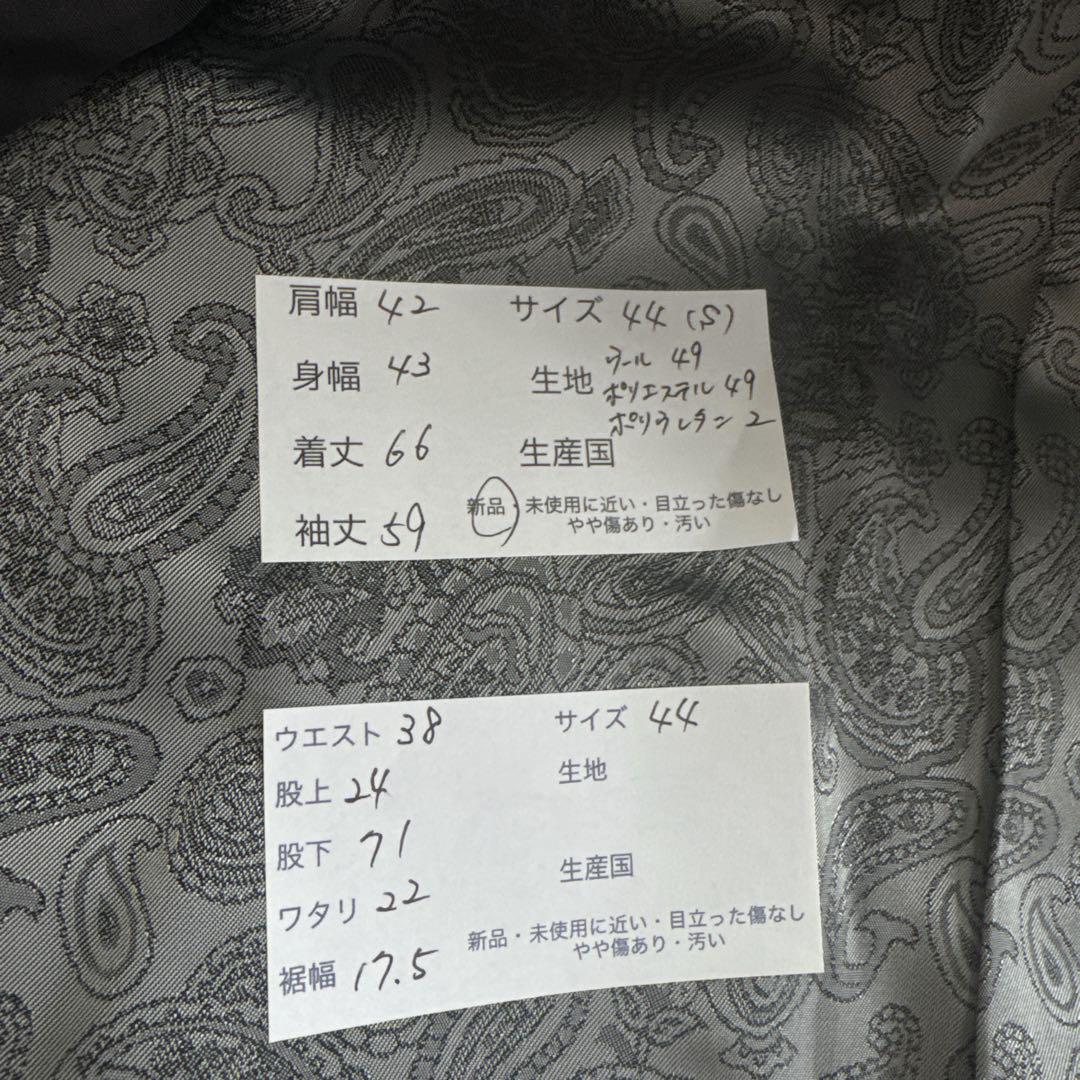 肩幅 42 サイズ 44 (S)
身幅 43 生地 ウール 49
ポリエステル 49
ポリウレタン 2
着丈 66 生産国
袖丈 59 新品・未使用に近い・目立った傷なし
やや傷あり・汚い
ウエスト 38 サイズ 44
股上 24 生地
股下 71
生産国
ワタリ 22
新品・未使用に近い・目立った傷なし
やや傷あり・汚い
裾幅 17.5